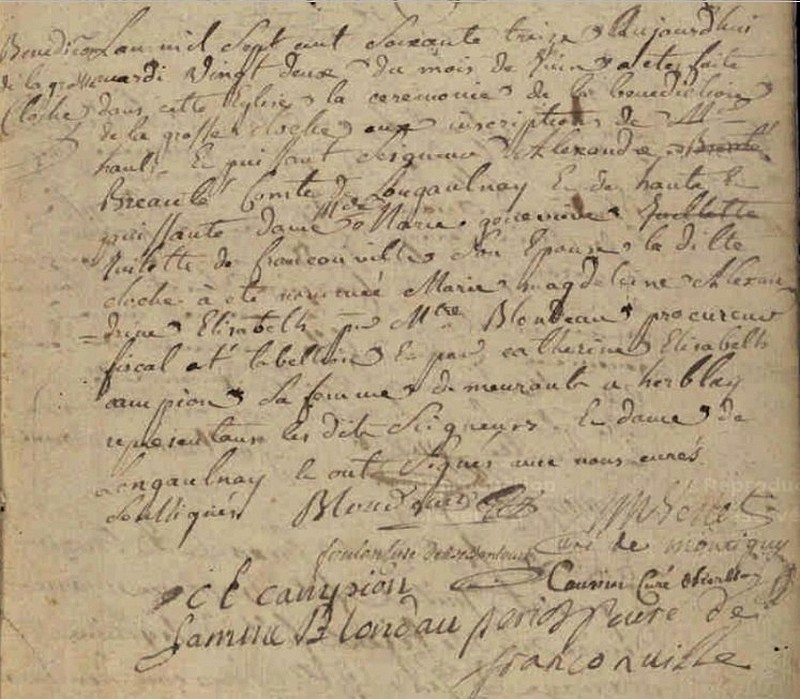 Benediction Lan mil Sept cent Soixante treize Aujourdhui
de la grosse mardi vingt deux du mois de Juin a ete faite
Cloche dans cette Eglise la ceremonie de la benediction
de la grosse cloche aux inscriptions de
haut Et puissant Seigneur Alexandre
Breauté Comte de Longaulnay Et de haute Et
puissante dame Marie genevieve Quillette
Quilette de franconville Son Epouse la ditte
cloche à eté nommée Marie magdeleine Alexan
=drine Elisabeth par Mtre Blondeau procureur
fiscal et tabellion Et par catherine Elisabeth
campion Sa femme demeurant a herblay
representans les dits Seigneurs Et dame de
Longaulnay Et ont Signés avec nous curés
Soussignés Blondeau
curé de montigny
c E campion Cousin Curé
famme Blondau curé de
franconville